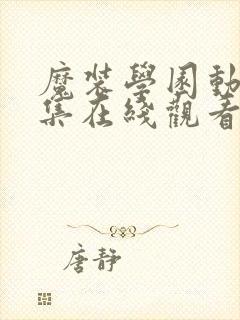 魔裝學園動
集在綫觀看
唐靜